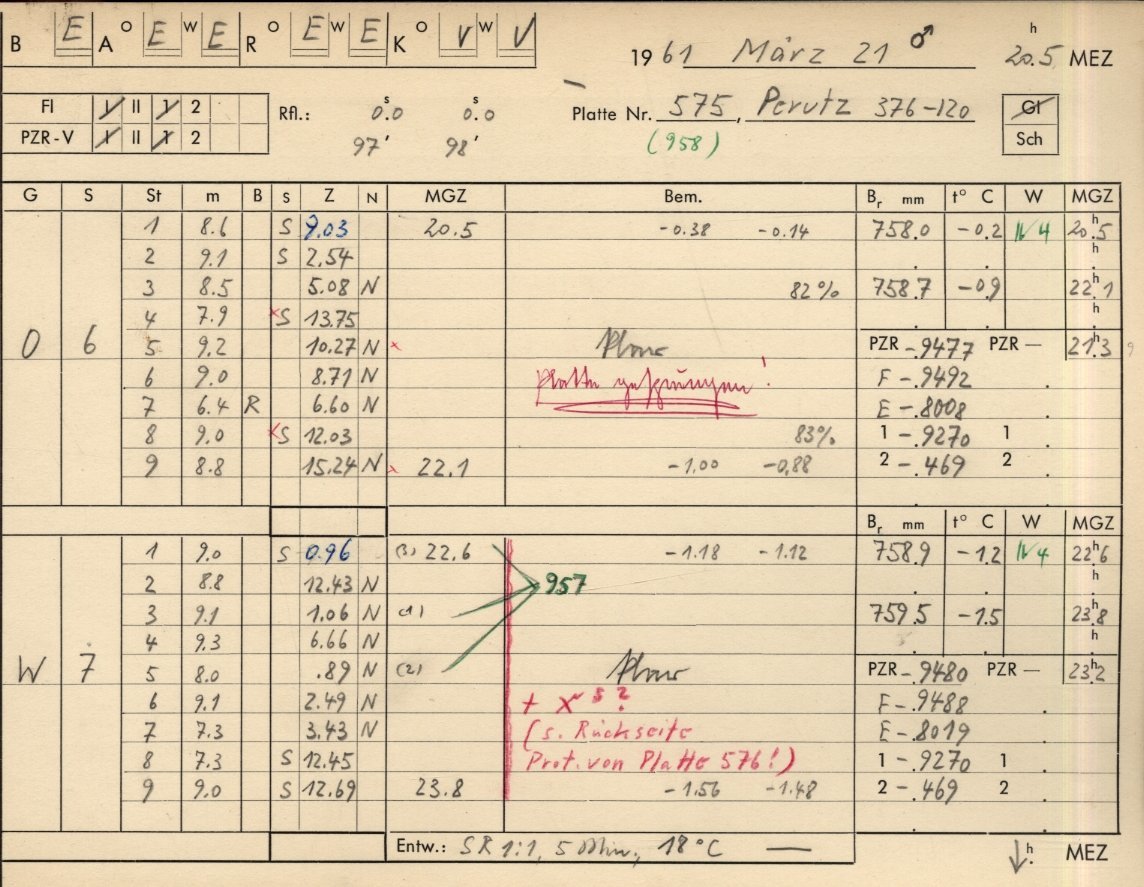 B E A O E W E R O E W E K O V W V 1961 März 21 ♂ 20.5 h MEZ
FI I II 1 2 Rfl.: 0.0 s 0.0 s Platte Nr. 575, Perutz 376-120 GI
PZR-V I II 1 2 97' 98' (958) Sch
G S St m B S Z N MGZ Bem. Br mm t° C W MGZ
1 8.6 S 9.03 20.5 -0.38 -0.14 758.0 -0.2 IV 4 20.5 h
2 9.1 S 2.54 h
3 8.5 5.08 N 82% 758.7 -0.9 22.1 h
4 7.9 ×S 13.75 h
O 6 5 9.2 10.27 N × PZR -.9477 PZR - 21.3 h 9
6 9.0 8.71 N Platte gesprungen! F -.9492
7 6.4 R 6.60 N E -.8008
8 9.0 ×S 12.03 83% 1 -.9270 1
9 8.8 15.24 N × 22.1 -1.00 -0.88 2 -.469 2
Br mm t° C W MGZ
1 9.0 S 0.96 (3) 22.6 -1.18 -1.12 758.9 -1.2 IV 4 22.6 h
2 8.8 12.43 N 957 h
3 9.1 1.06 N (1) 759.5 -1.5 23.8 h
4 9.3 6.66 N h
W 7 5 8.0 .89 N (2) PZR -.9480 PZR - 23.2 h
6 9.1 2.49 N + x s ? F -.9488
7 7.3 3.43 N (s. Rückseite E -.8019
8 7.3 S 12.45 Prot. von Platte 576!) 1 -.9270 1
9 9.0 S 12.69 23.8 -1.56 -1.48 2 -.469 2
Entw.: SR 1:1, 5 Min., 18°C — h MEZ